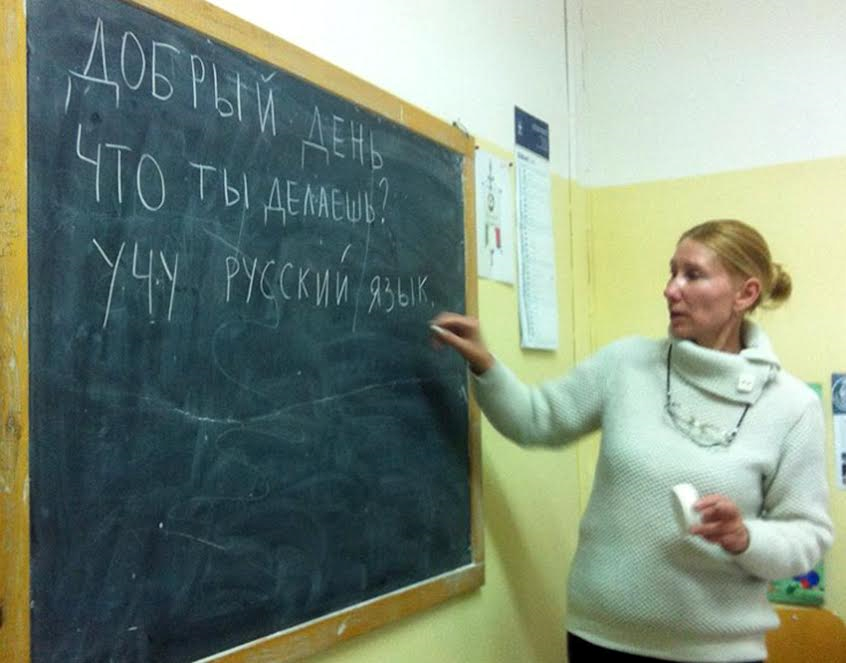 ДОБРЫЙ ДЕНЬ
ЧТО ТЫ ДЕЛАЕШЬ?
УЧУ РУССКИЙ ЯЗЫК.